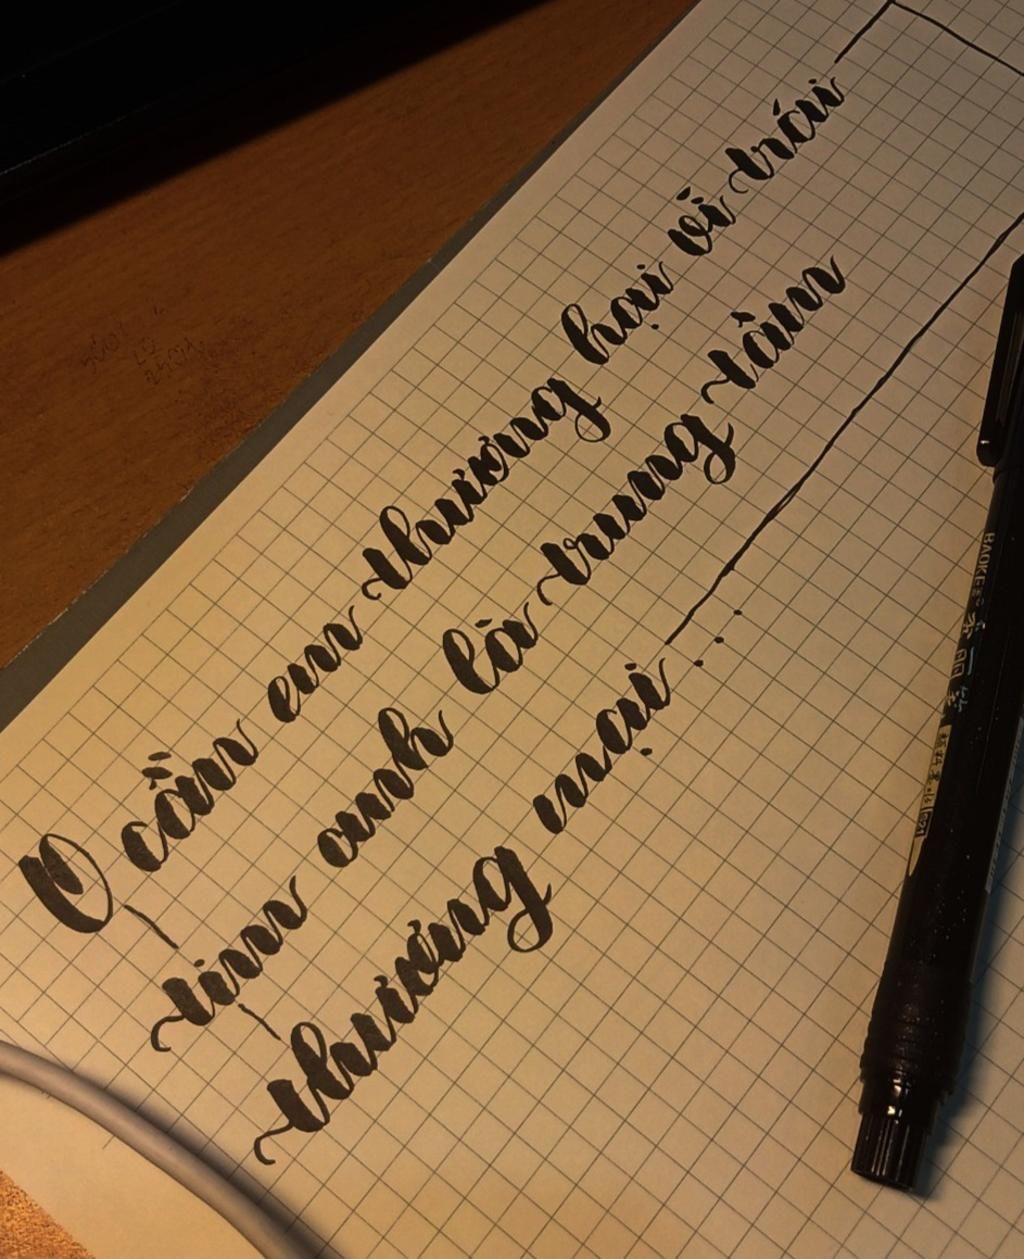 O cần em thương hại vì trái
tim anh là trung tâm
thương mại ...
HAOKE